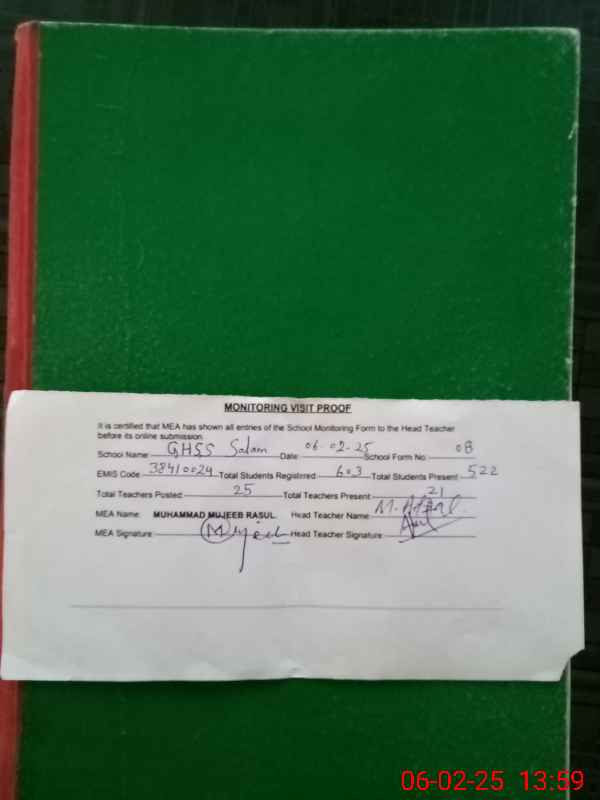 MONITORING VISIT PROOF
It is certified that MEA has shown all entries of the School Monitoring Form to the Head Teacher
before its online submission
School Name GHSS Salam Date 06-02-25 School Form No. 08
EMIS Code 38410024 Total Students Registered 603 Total Students Present 522
Total Teachers Posted 25 Total Teachers Present 21
MEA Name: MUHAMMAD MUJEEB RASUL. Head Teacher Name M. Afzal
MEA Signature Mujeeb Head Teacher Signature
06-02-25 13:59